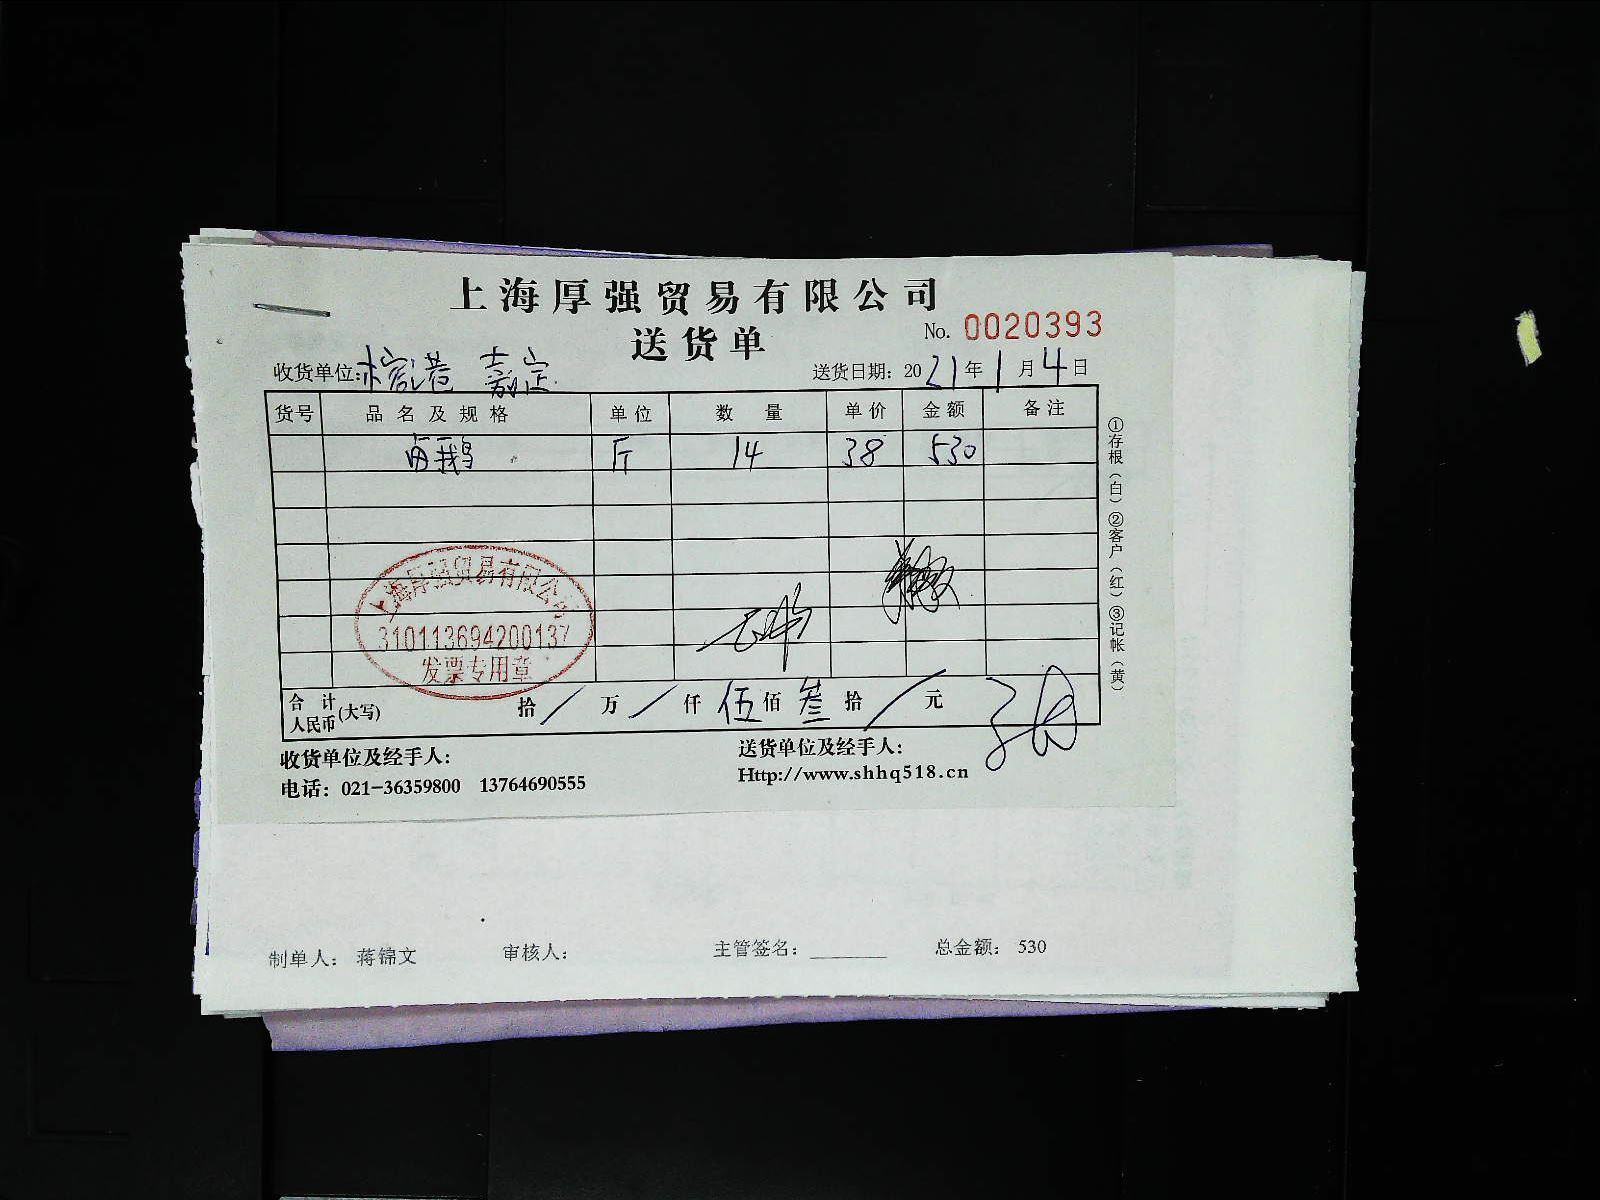 上海厚强贸易有限公司
送货单
No. 0020393
收货单位: 港 嘉定
送货日期: 2021年1月4日
货号 品名及规格 单位 数量 单价 金额 备注
卤鹅 斤 14 38 530
①存根(白)②客户(红)③记帐(黄)
上海厚强贸易有限公司
310113694200137
发票专用章
合计人民币(大写) 拾/万/仟伍佰叁拾/元
收货单位及经手人:
送货单位及经手人:
电话: 021-36359800 13764690555
Http://www.shhq518.cn
制单人: 蒋锦文 审核人: 主管签名: ________ 总金额: 530